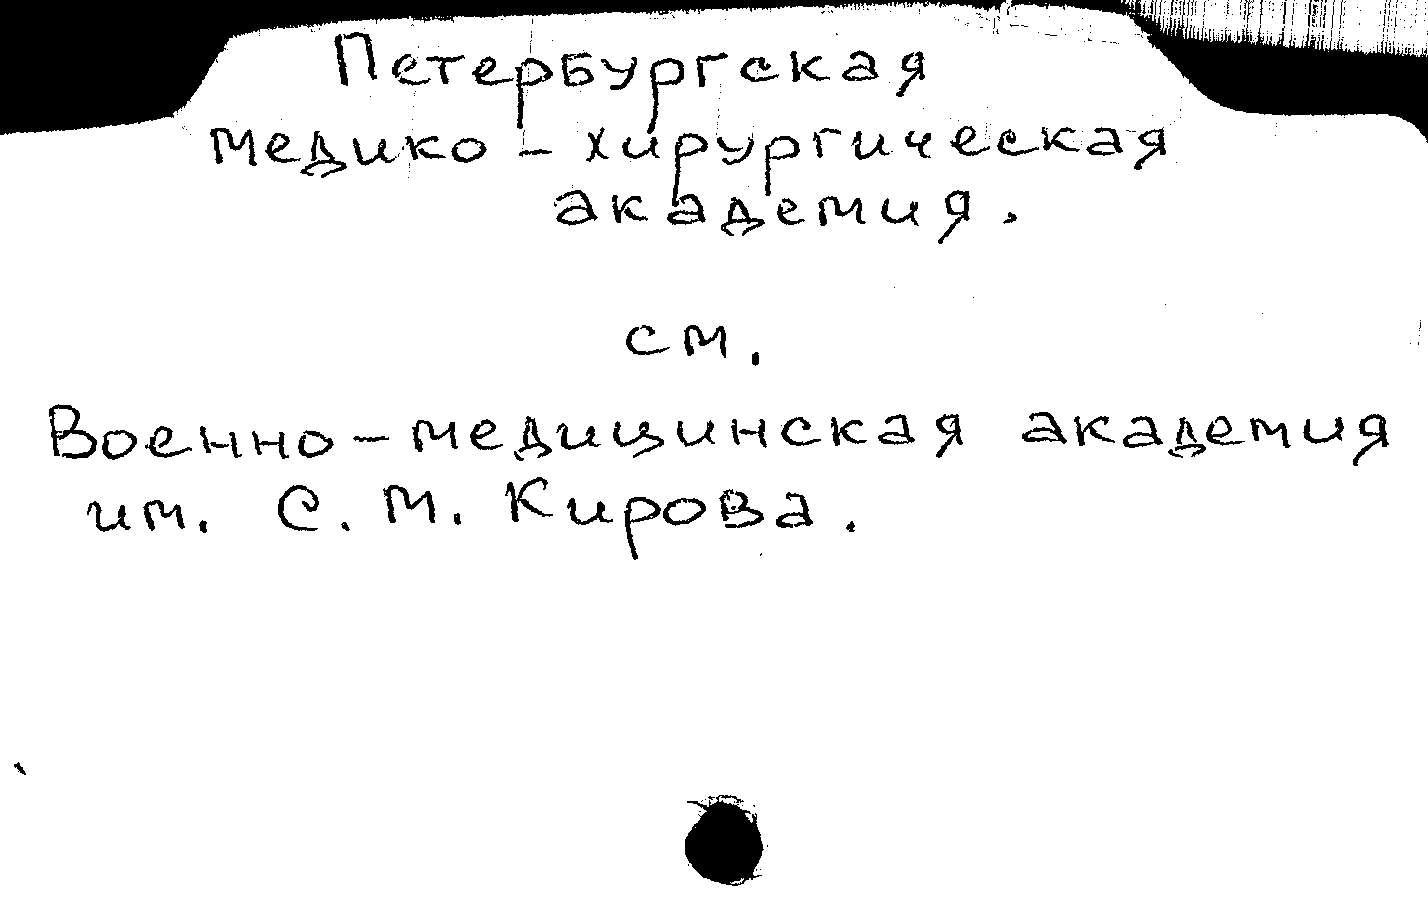 Петербургская
медико-хирургическая
академия.
см.
Военно-медицинская академия
им. С. М. Кирова.